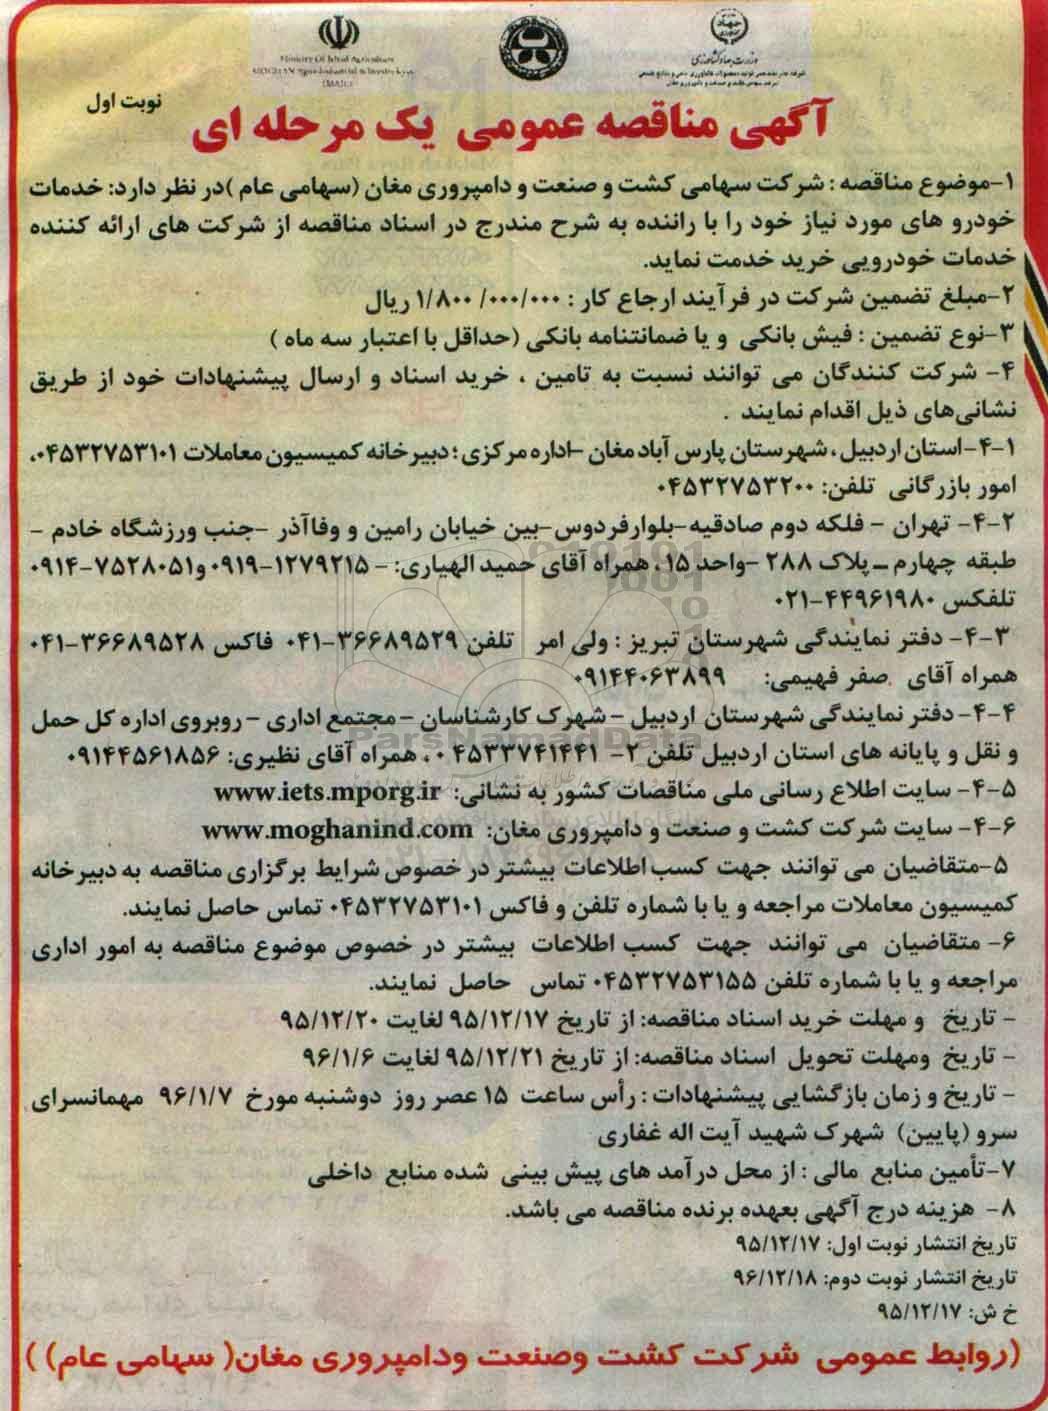 وزارت جهاد کشاورزی
Ministry Of Jehad Agriculture
نوبت اول
آگهی مناقصه عمومی یک مرحله ای
۱-موضوع مناقصه : شرکت سهامی کشت و صنعت و دامپروری مغان (سهامی عام )در نظر دارد: خدمات
خودرو های مورد نیاز خود را با راننده به شرح مندرج در اسناد مناقصه از شرکت های ارائه کننده
خدمات خودرویی خرید خدمت نماید.
۲-مبلغ تضمین شرکت در فرآیند ارجاع کار : ۱/۸۰۰/۰۰۰/۰۰۰ ریال
۳-نوع تضمین : فیش بانکی و یا ضمانتنامه بانکی (حداقل با اعتبار سه ماه )
۴- شرکت کنندگان می توانند نسبت به تامین ، خرید اسناد و ارسال پیشنهادات خود از طریق
نشانی‌های ذیل اقدام نمایند .
۴-۱-استان اردبیل، شهرستان پارس آباد مغان -اداره مرکزی؛ دبیرخانه کمیسیون معاملات ۰۴۵۳۲۷۵۳۱۰۱،
امور بازرگانی تلفن: ۰۴۵۳۲۷۵۳۲۰۰
۴-۲- تهران - فلکه دوم صادقیه-بلوارفردوس-بین خیابان رامین و وفاآذر -جنب ورزشگاه خادم -
طبقه چهارم ــ پلاک ۲۸۸ -واحد ۱۵ ، همراه آقای حمید الهیاری: - ۱۲۷۹۲۱۵-۰۹۱۹ و۷۵۲۸۰۵۱-۰۹۱۴
تلفکس ۴۴۹۶۱۹۸۰-۰۲۱
۴-۳- دفتر نمایندگی شهرستان تبریز : ولی امر تلفن ۳۶۶۸۹۵۲۹-۰۴۱ فاکس ۳۶۶۸۹۵۲۸-۰۴۱
همراه آقای صفر فهیمی: ۰۹۱۴۴۰۶۳۸۹۹
۴-۴-دفتر نمایندگی شهرستان اردبیل - شهرک کارشناسان - مجتمع اداری - روبروی اداره کل حمل
و نقل و پایانه های استان اردبیل تلفن ۲- ۰۴۵۳۳۷۴۱۴۴۱ ، همراه آقای نظیری: ۰۹۱۴۴۵۶۱۸۵۶
۴-۵- سایت اطلاع رسانی ملی مناقصات کشور به نشانی: www.iets.mporg.ir
۴-۶- سایت شرکت کشت و صنعت و دامپروری مغان: www.moghanind.com
۵-متقاضیان می توانند جهت کسب اطلاعات بیشتر در خصوص شرایط برگزاری مناقصه به دبیرخانه
کمیسیون معاملات مراجعه و یا با شماره تلفن و فاکس ۰۴۵۳۲۷۵۳۱۰۱ تماس حاصل نمایند.
۶- متقاضیان می توانند جهت کسب اطلاعات بیشتر در خصوص موضوع مناقصه به امور اداری
مراجعه و یا با شماره تلفن ۰۴۵۳۲۷۵۳۱۵۵ تماس حاصل نمایند.
- تاریخ و مهلت خرید اسناد مناقصه: از تاریخ ۹۵/۱۲/۱۷ لغایت ۹۵/۱۲/۲۰
- تاریخ ومهلت تحویل اسناد مناقصه: از تاریخ ۹۵/۱۲/۲۱ لغایت ۹۶/۱/۶
- تاریخ و زمان بازگشایی پیشنهادات : رأس ساعت ۱۵ عصر روز دوشنبه مورخ ۹۶/۱/۷ مهمانسرای
سرو (پایین) شهرک شهید آیت اله غفاری
۷-تأمین منابع مالی : از محل درآمد های پیش بینی شده منابع داخلی
۸- هزینه درج آگهی بعهده برنده مناقصه می باشد.
تاریخ انتشار نوبت اول: ۹۵/۱۲/۱۷
تاریخ انتشار نوبت دوم: ۹۶/۱۲/۱۸
خ ش: ۹۵/۱۲/۱۷
(روابط عمومی شرکت کشت وصنعت ودامپروری مغان( سهامی عام) )
ParsNamadData